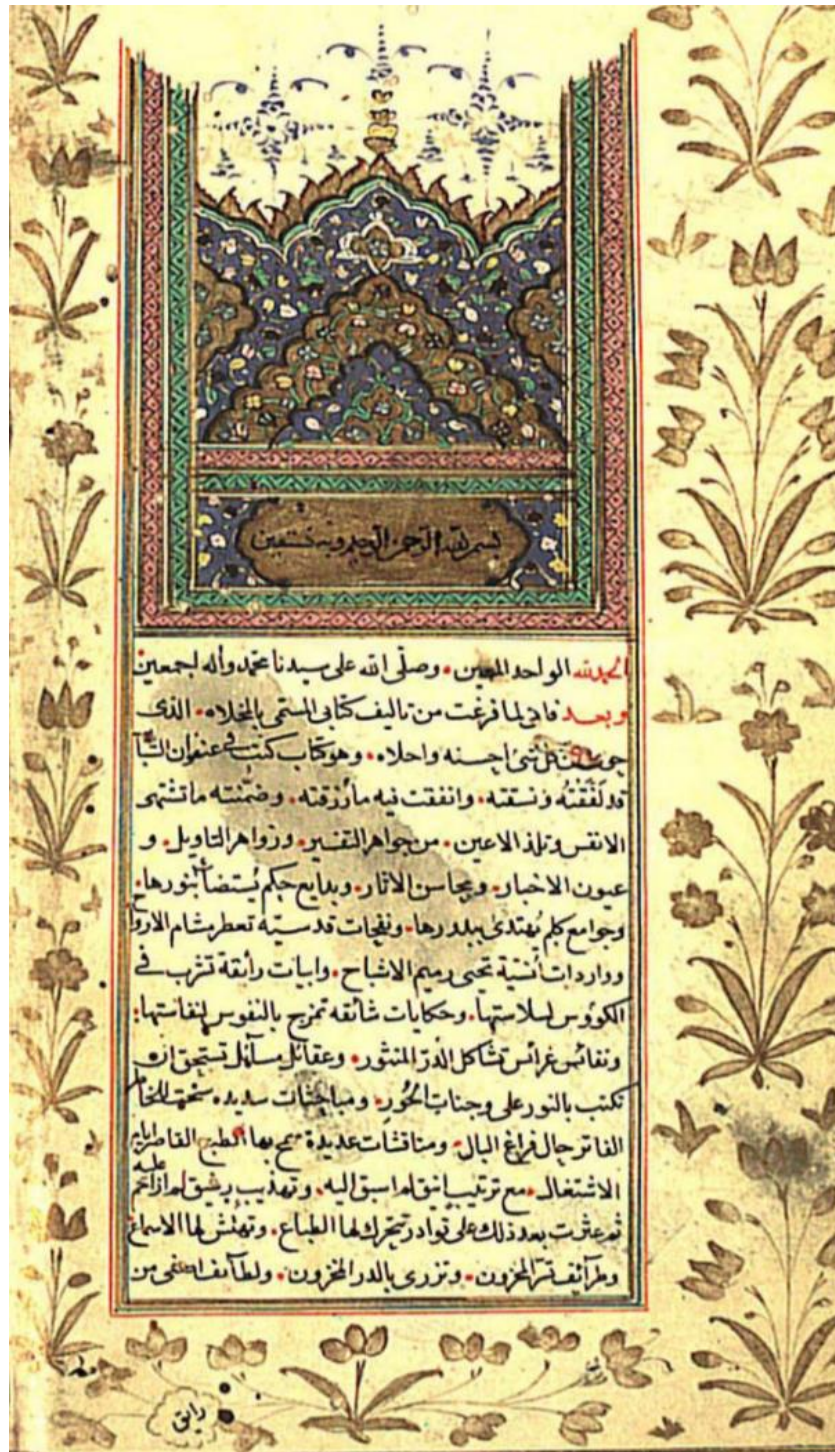 بسم الله الرحمن الرحيم وبه نستعين
الحمد لله الواحد المعين، وصلى الله على سيدنا محمد وآله اجمعين
وبعد فاني لما فرغت من تاليف كتابي المسمى بالمخلاه، الذي
حوى من كل شئ احسنه واحلاه، وهو كتاب كتب في عنفوان الشبا
قد لفقته ونسقته، وانفقت فيه ما رزقته، وضمنته ما تشتهي
الانفس وتلذ الاعين، من جواهر التفسير، وزواهر التاويل، و
عيون الاخبار، ومحاسن الاثار، وبدايع حكم يستضأ بنورها،
وجوامع كلم يهتدى ببدرها، ونفحات قدسية تعطر مشام الاروا
وواردات أنسية تحيى رميم الاشباح، وابيات رائقة تشرب في
الكؤوس لسلاستها، وحكايات شائقه تمزج بالنفوس لنفاستها،
ونفائس غرائس تشاكل الدر المنثور، وعقائل مسائل تستحق ان
تكتب بالنور على وجنات الحور، ومباحثات سديده سنحت للخاطر
الفاتر حال فراغ البال، ومناقشات عديدة سمح بها الطبع القاصر ايام
الاشتغال، مع ترتيب انيق لم اسبق اليه، وتهذيب رشيق لم ازاحم عليه
ثم عثرت بعد ذلك على نوادر تتحرك لها الطباع، وتهش لها الاسماع
وطرائف تسر المحزون، وتزرى بالدر المخزون، ولطائف اصفى من
رائق